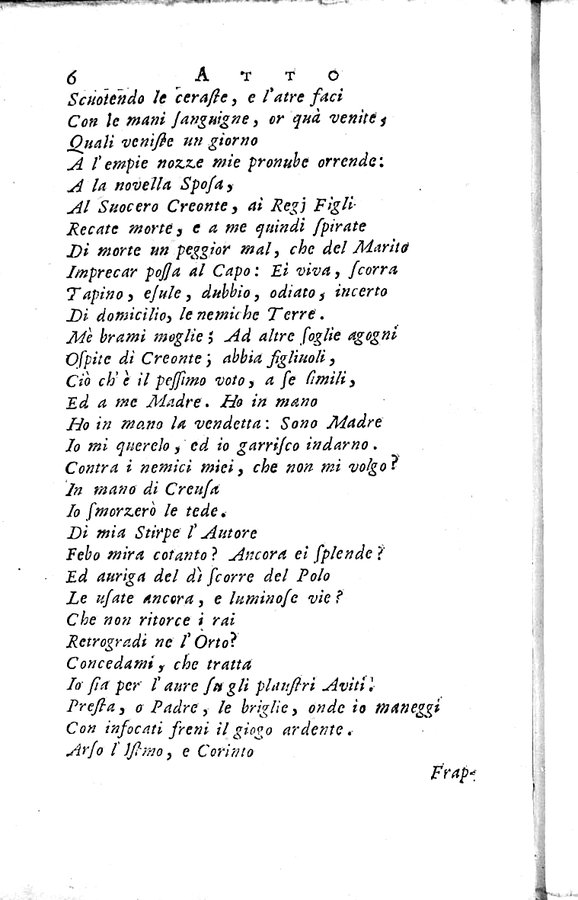 6 ATTO
Scuotendo le ceraſte, e l'atre faci
Con le mani ſanguigne, or quà venite,
Quali veniſte un giorno
A l'empie nozze mie pronube orrende:
A la novella Spoſa,
Al Suocero Creonte, ai Regj Figli
Recate morte, e a me quindi ſpirate
Di morte un peggior mal, che del Marito
Imprecar poſſa al Capo: Ei viva, ſcorra
Tapino, eſule, dubbio, odiato, incerto
Di domicilio, le nemiche Terre.
Mè brami moglie; Ad altre ſoglie agogni
Oſpite di Creonte; abbia figliuoli,
Ciò ch'è il peſſimo voto, a ſe ſimili,
Ed a me Madre. Ho in mano
Ho in mano la vendetta: Sono Madre
Io mi querelo, ed io garriſco indarno.
Contra i nemici miei, che non mi volgo?
In mano di Creuſa
Io ſmorzerò le tede.
Di mia Stirpe l'Autore
Febo mira cotanto? Ancora ei ſplende?
Ed auriga del dì ſcorre del Polo
Le uſate ancora, e luminoſe vie?
Che non ritorce i rai
Retrogradi ne l'Orto?
Concedami, che tratta
Io ſia per l'aure ſu gli plauſtri Aviti!
Preſta, o Padre, le briglie, onde io maneggi
Con infocati freni il giogo ardente.
Arſo l'Iſtmo, e Corinto
Frap-